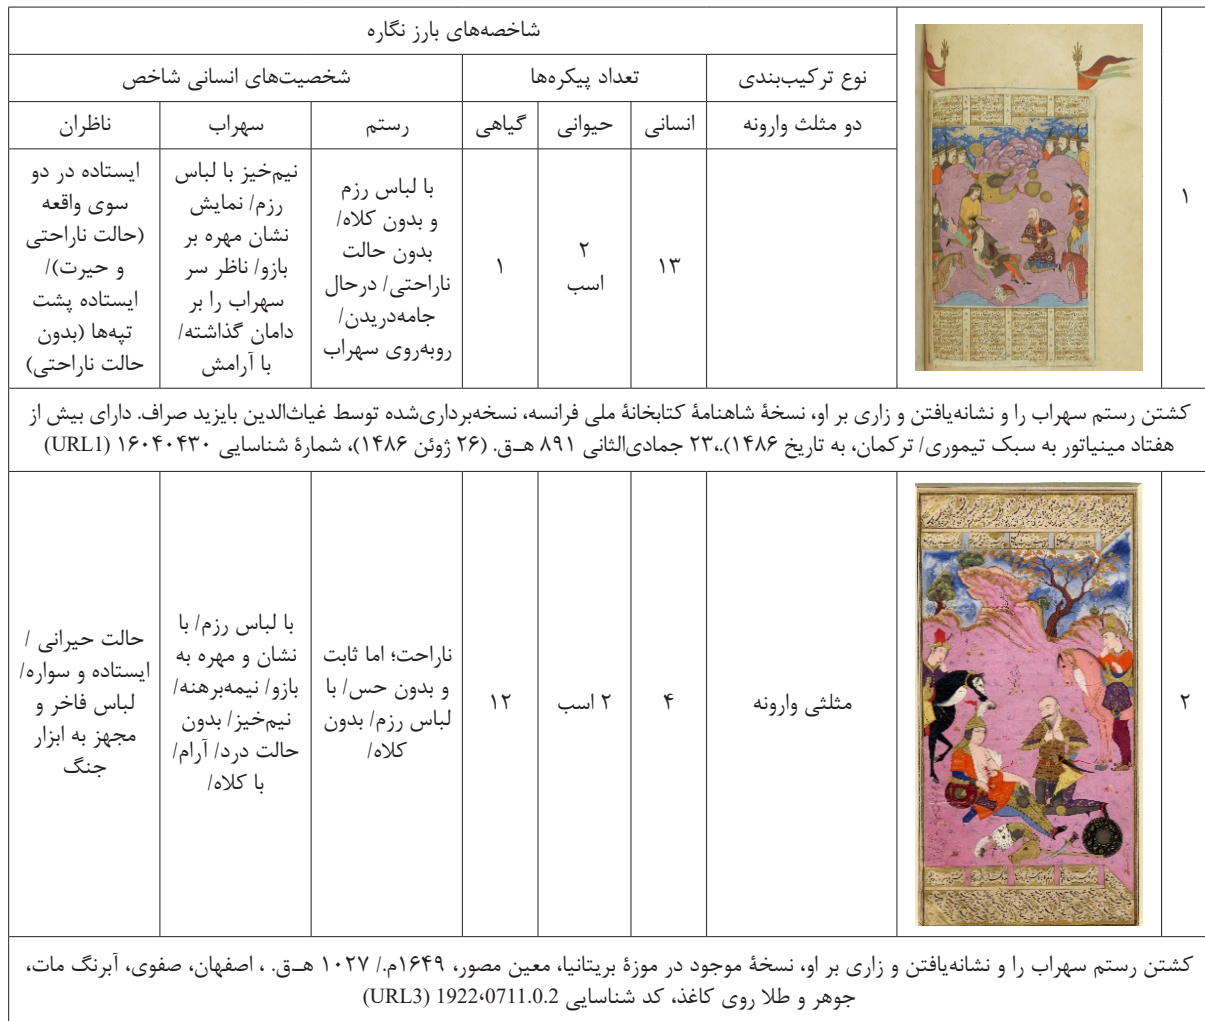 شاخصه‌های بارز نگاره
نوع ترکیب‌بندی
تعداد پیکره‌ها
شخصیت‌های انسانی شاخص
دو مثلث وارونه
انسانی
حیوانی
گیاهی
رستم
سهراب
ناظران
۱
۱۳
۲
اسب
۱
با لباس رزم
و بدون کلاه/
بدون حالت
ناراحتی/ درحال
جامه‌دریدن/
روبه‌روی سهراب
نیم‌خیز با لباس
رزم/ نمایش
نشان مهره بر
بازو/ ناظر سر
سهراب را بر
دامان گذاشته/
با آرامش
ایستاده در دو
سوی واقعه
(حالت ناراحتی
و حیرت)/
ایستاده پشت
تپه‌ها (بدون
حالت ناراحتی)
کشتن رستم سهراب را و نشانه‌یافتن و زاری بر او، نسخهٔ شاهنامهٔ کتابخانهٔ ملی فرانسه، نسخه‌برداری‌شده توسط غیاث‌الدین بایزید صراف. دارای بیش از
هفتاد مینیاتور به سبک تیموری/ ترکمان، به تاریخ ۱۴۸۶).،۲۳ جمادی‌الثانی ۸۹۱ هـ‌ق. (۲۶ ژوئن ۱۴۸۶)، شمارهٔ شناسایی ۱۶۰۴۰۴۳۰ (URL1)
۲
مثلثی وارونه
۴
۲ اسب
۱۲
ناراحت؛ اما ثابت
و بدون حس/ با
لباس رزم/ بدون
کلاه/
با لباس رزم/ با
نشان و مهره به
بازو/ نیمه‌برهنه/
نیم‌خیز/ بدون
حالت درد/ آرام/
با کلاه/
حالت حیرانی /
ایستاده و سواره/
لباس فاخر و
مجهز به ابزار
جنگ
کشتن رستم سهراب را و نشانه‌یافتن و زاری بر او، نسخهٔ موجود در موزهٔ بریتانیا، معین مصور، ۱۶۴۹م./ ۱۰۲۷ هـ‌ق. ، اصفهان، صفوی، آبرنگ مات،
جوهر و طلا روی کاغذ، کد شناسایی 1922،0711.0.2 (URL3)